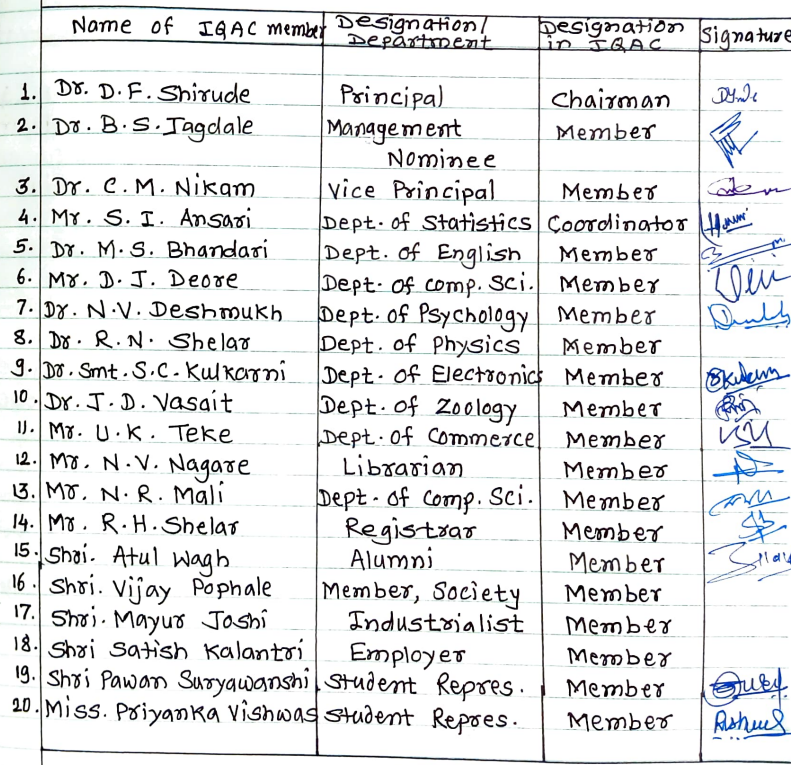 Name of IQAC member Designation/ Department Designation in IQAC Signature
1. Dr. D.F. Shirude Principal Chairman
2. Dr. B.S. Jagdale Management Member
Nominee
3. Dr. C.M. Nikam Vice Principal Member
4. Mr. S.I. Ansari Dept. of Statistics Coordinator
5. Dr. M.S. Bhandari Dept. of English Member
6. Mr. D.J. Deore Dept. of Comp. Sci. Member
7. Dr. N.V. Deshmukh Dept. of Psychology Member
8. Dr. R.N. Shelar Dept. of Physics Member
9. Dr. Smt. S.C. Kulkarni Dept. of Electronics Member
10. Dr. J.D. Vasait Dept. of Zoology Member
11. Mr. U.K. Teke Dept. of Commerce Member
12. Mr. N.V. Nagare Librarian Member
13. Mr. N.R. Mali Dept. of Comp. Sci. Member
14. Mr. R.H. Shelar Registrar Member
15. Shri. Atul Wagh Alumni Member
16. Shri. Vijay Pophale Member, Society Member
17. Shri. Mayur Joshi Industrialist Member
18. Shri Satish Kalantri Employer Member
19. Shri Pawan Suryawanshi Student Repres. Member
20. Miss. Priyanka Vishwas Student Repres. Member